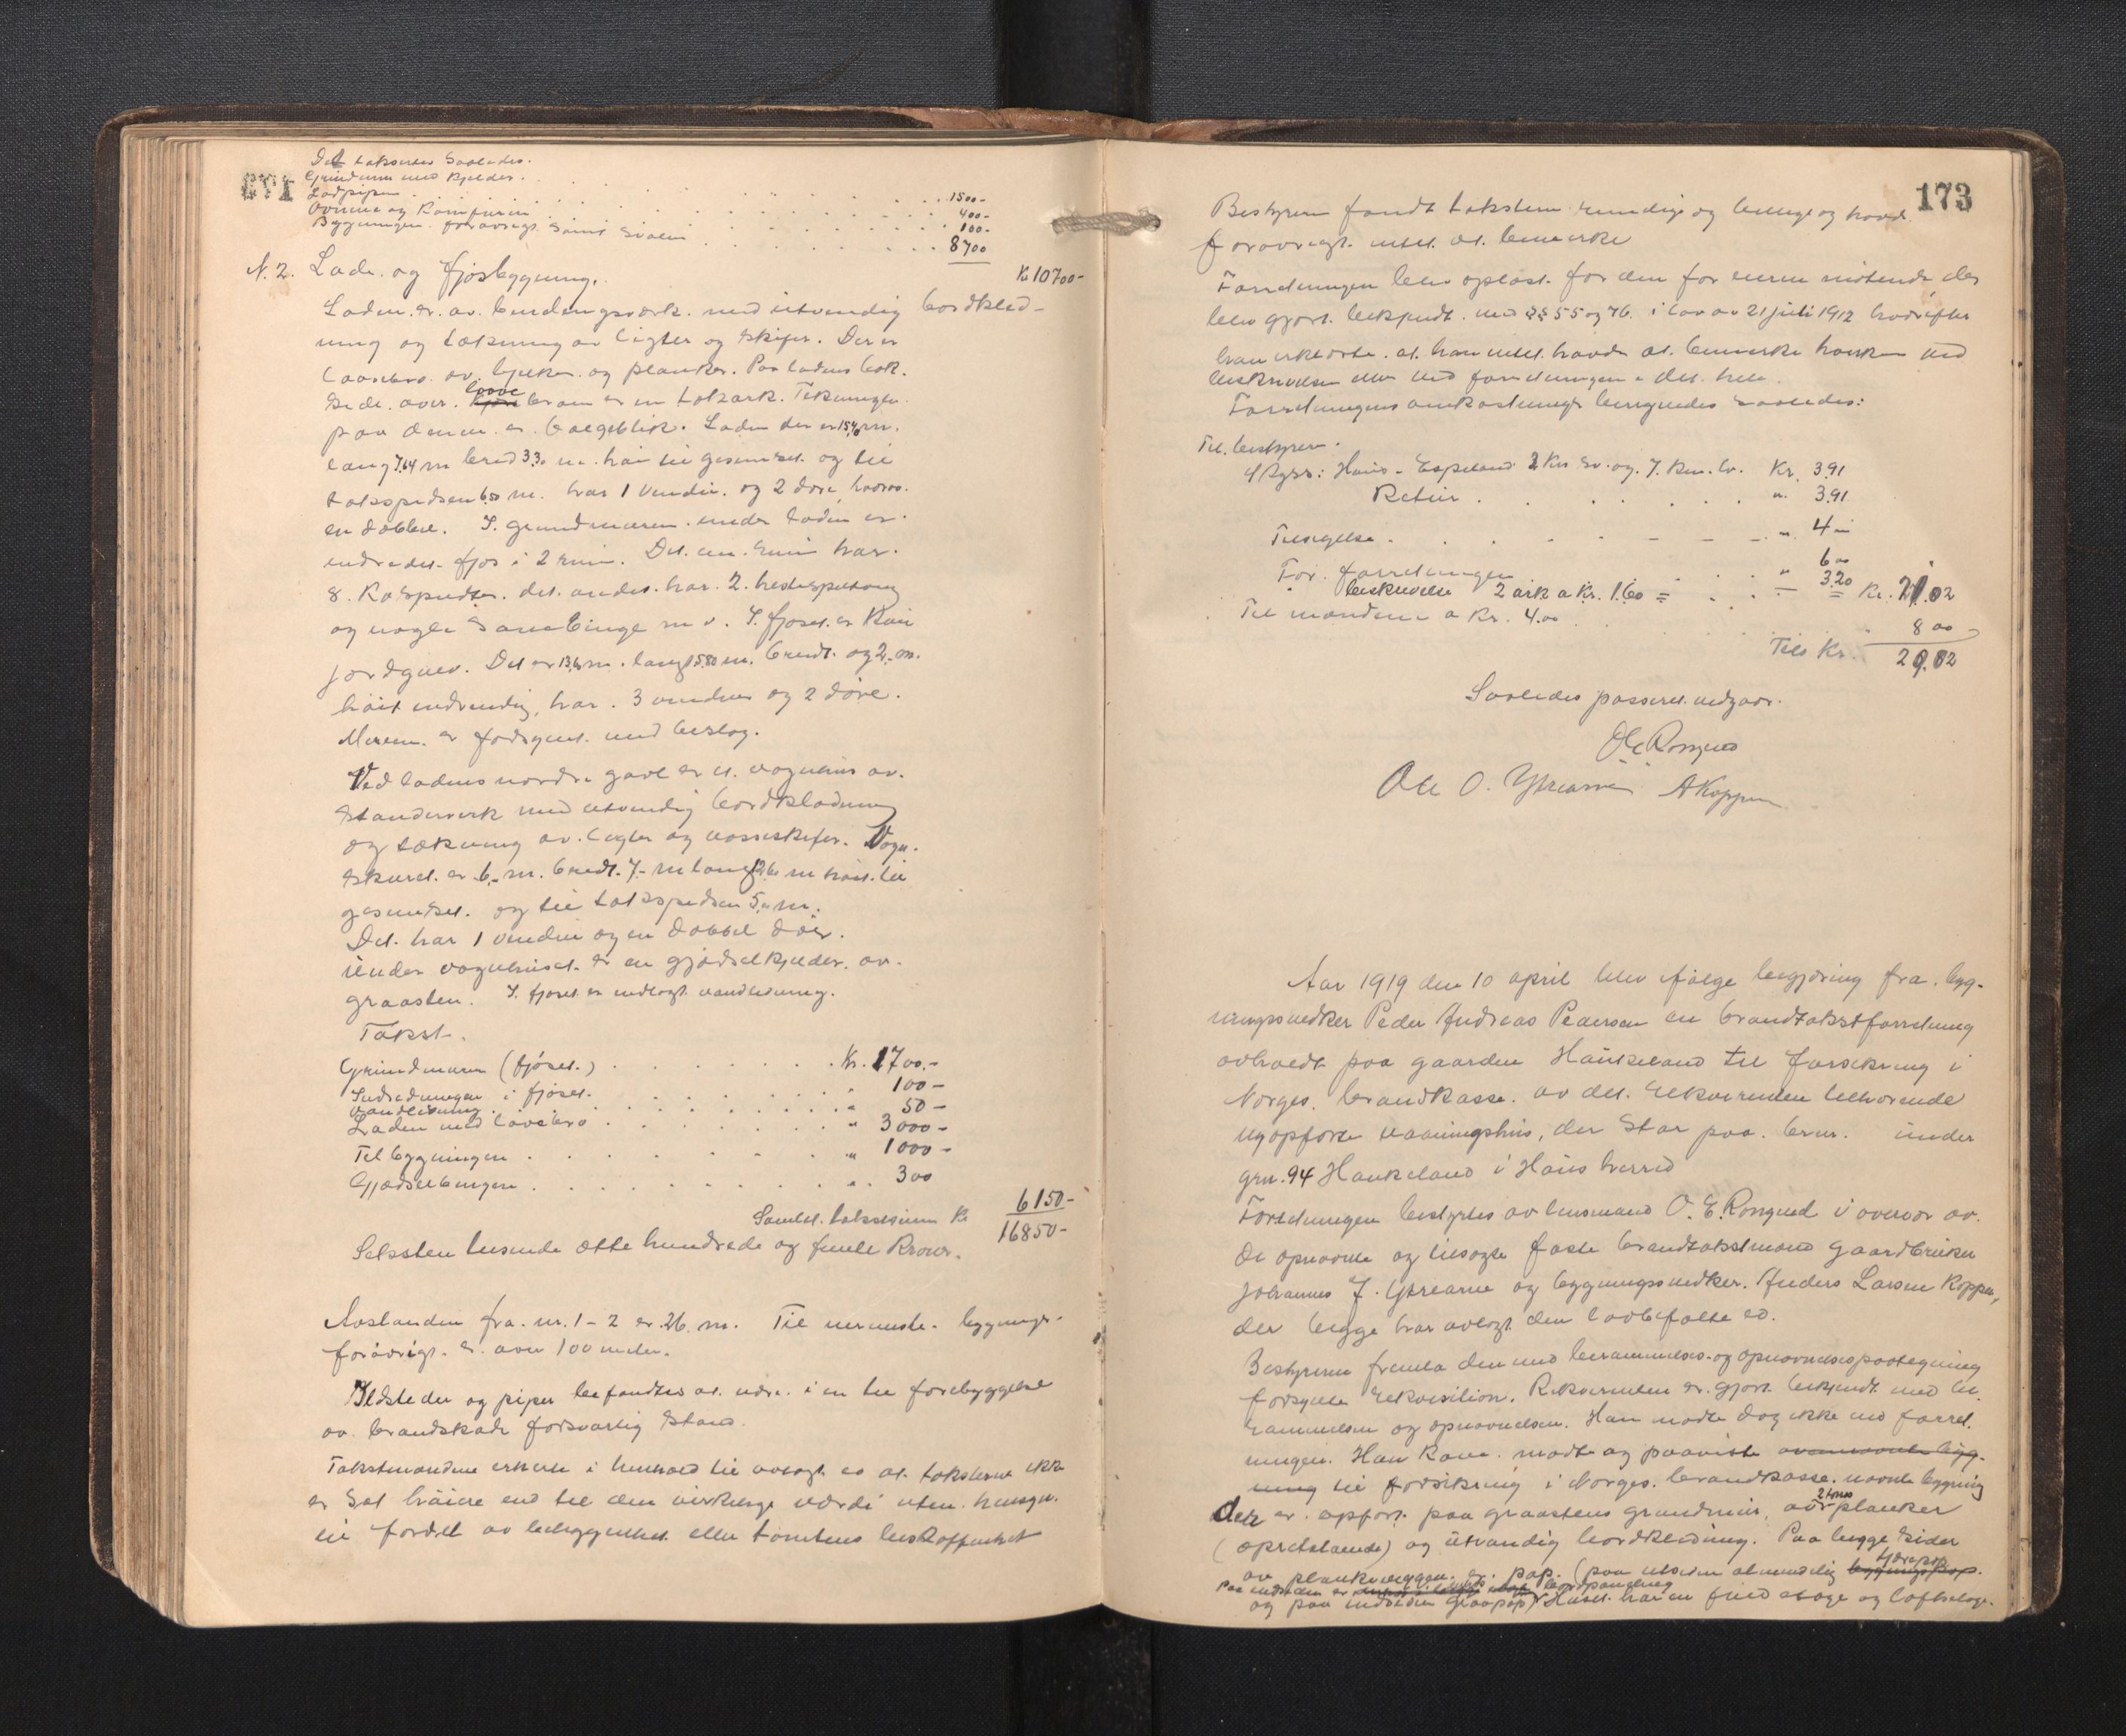 Det takseres saaledes.
Grundmur med kjelder . . . 1500-
Ladpipen . . . 400-
Ovnene og Komfuren . . . 100-
Bygningen forøvrigt samt svalen . . . 8700
Kr 10700-
N. 2. Lade og fjøsbygning.
Laden er av bindingsverk med utvendig bordklæd-
ning og tækning av ligter og skifer. Der er
laavebro av bjelker og planker. Paa ladens bak-
side over laave broen er en takark. Tækningen
paa denne er bølgeblik. Laden der er 15,40 m.
lang 7,64 m bred 3,30 m. høi til gesimset og til
takspidsen 6,50 m. har 1 vindu og 2 døre, hvorav
en dobbel. I grundmuren under laden er
indredet fjøs i 2 rum. Det ene rum har
8 Kospilter. det andet har 2 hestespiltoug
og nogle sauebinge m v. I fjøset er kun
jordgulv. Det er 13,60 m. langt 5,80 m. bredt og 2,- m.
høit indvendig, har 3 vinduer og 2 døre.
Muren er forsynet med beslag.
Ved ladens nordre gavl er et vognhus av
standerverk med utvendig bordklædning
og tækning av ligter og vosseskifer. Vogn-
skuret er 6,- m. bredt 7,- m langt 3,60 m høit til
gesimset og til takspidsen 5,- m.
Det har 1 vindu og en dobbel dør.
Under vognhuset er en gjødselkjelder av
graasten. I fjøset er indlagt vandledning.
Takst.
Grundmuren (fjøset.) . . . Kr. 1700.-
Indredningen i fjøset. . . . " 100-
Vandledning . . . " 50-
Laden med lavebro . . . " 3000-
Tilbygningen . . . " 1000-
Gjødselbingen . . . " 300
6150-
Samlet takstsum Kr 16850-
Seksten tusende otte hundrede og femti Kroner.
Avstanden fra nr. 1-2 er 26 m. Til nærmeste bygninger
forøvrigt er over 100 meter.
Ildsteder og piper befandtes at være i en til forebyggelse
av brandskade forsvarlig stand.
Takstmændene erklærte i henhold til avlagt ed at taksterne ikke
er sat høiere end til den virkelige værdi uten hensyn
til fordel av beliggenhet eller tomtens beskaffenhet
173
Bestyreren fandt taksten rimelige og billige og hadde
forøvrigt intet at bemerke
Forretningen blev oplæst for den for eieren møtende, der
blev gjort bekjendt med §§ 55 og 76 i lov av 21 juli 1912 hvorefter
han erklærte at han intet havde at bemerke hverken ved
beskrivelsen eller ved forretningen i det hele.
Forretningens omkostninger beregnedes saaledes:
Til bestyreren.
Skyss: Haus - Espeland 2 Km sv. og 7 Km. lv. Kr. 3.91
Retur . . . " 3.91
Tilsigelse . . . " 4 -
For forretningen . . . " 6 00
beskrivelse 2 ark a Kr. 1.60 = . . . 3.20 Kr. 21.02
Til mændene a Kr. 4.00 . . . 8 00
Tils Kr. 29.02
Saaledes passeret vedgaar.
O E Rongved
Ole O. Ytrearne A Koppen
Aar 1919 den 10 april blev ifølge begjæring fra byg-
ningssnedker Peder Andreas Pedersen en brandtakstforretning
avholdt paa gaarden Haukeland til forsikring i
Norges brandkasse av det rekvirenten tilhørende
nyopførte vaaningshus, der staar paa brnr. under
grn. 94 Haukeland i Haus herred
Forretningen bestyrtes av lensmand O. E. Rongved i overvær av
de opnævnte og tilsagte faste brandtakstmænd gaardbruker
Johannes J. Ytrearne og bygningssnedker Anders Larsen Koppen,
der begge har avlagt den lovbefalte ed.
Bestyreren fremla den med berammelses- og opnævnelsespaategning
forsynte rekvisition. Rekvirenten er gjort bekjendt med be-
rammelsen og opnævnelsen. Han møtte dog ikke ved forret-
ningen. Han kone møtte og paaviste ovennævnte byg-
ning til forsikring i Norges brandkasse nævnte bygning
der er opført paa graastens grundmur, av 2 toms planker
(opretstaaende) og utvendig bordklædning. Paa begge sider
av plankevæggen er pap. (paa utsiden almindelig tjærepap
og paa indsiden graapap) Huset har en fuld etage og loftsetage.
Paa indsiden er bordpaneling